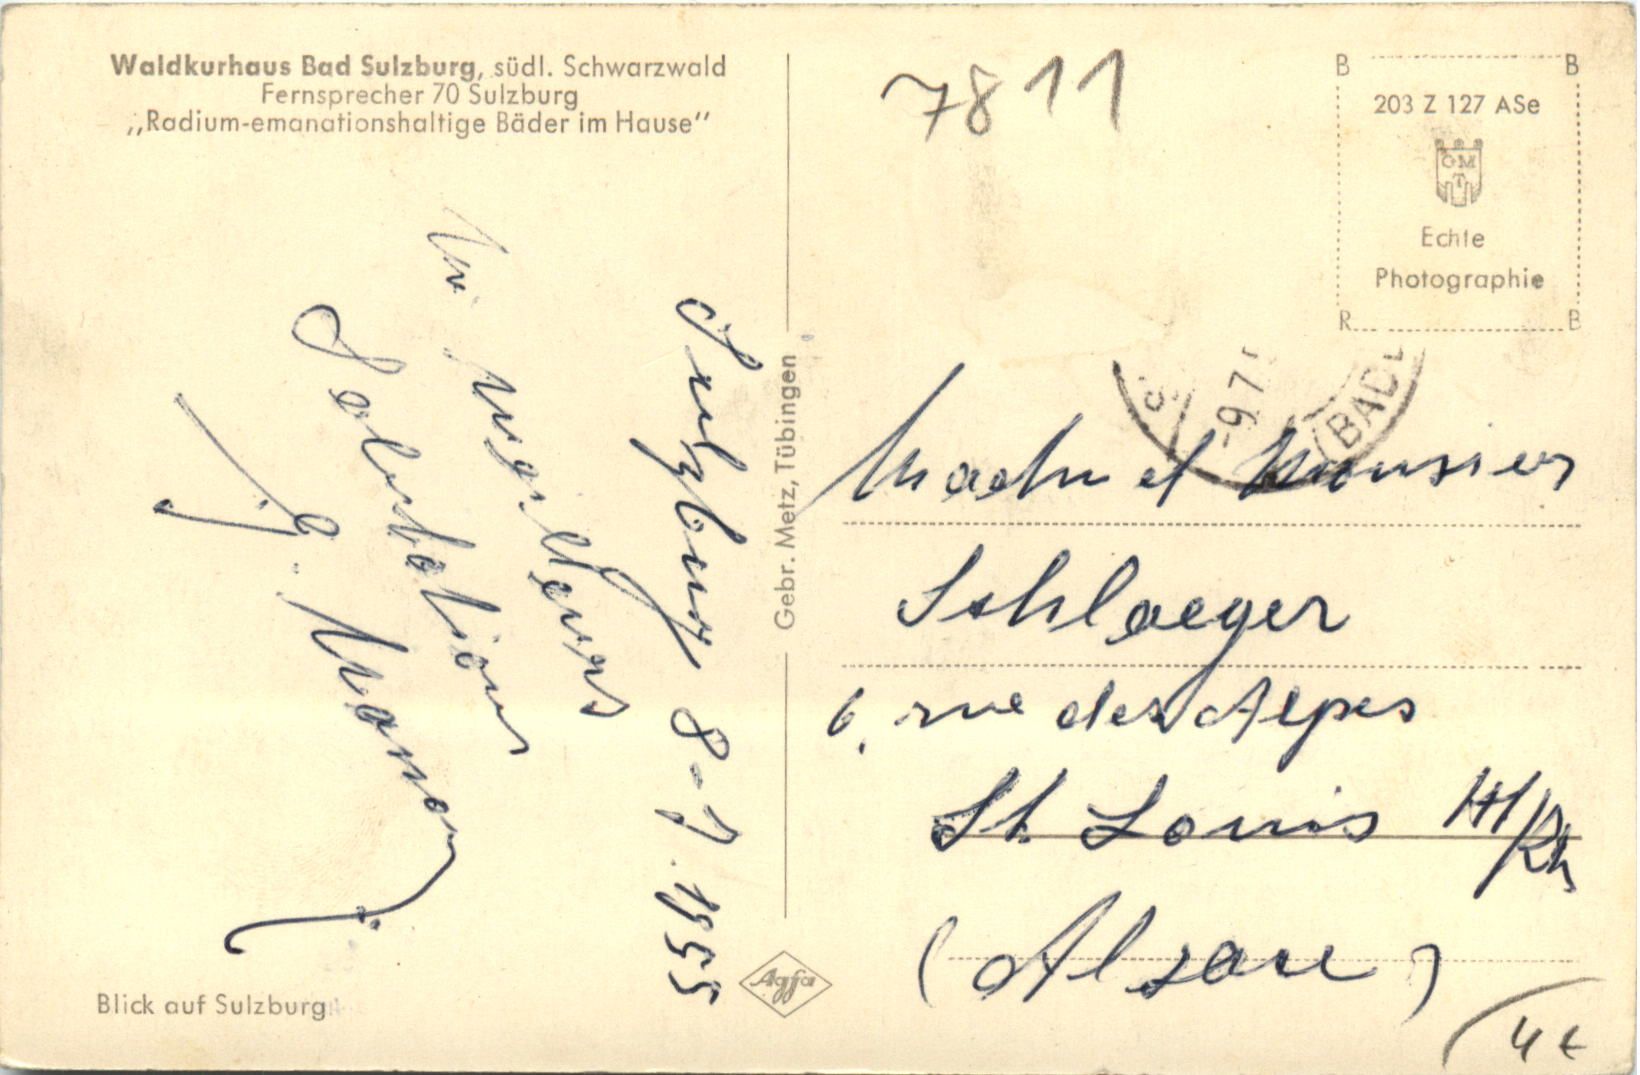 Waldkurhaus Bad Sulzburg, südl. Schwarzwald
Fernsprecher 70 Sulzburg
„Radium-emanationshaltige Bäder im Hause”
Sulzburg 8-7.1955
Salutations
Blick auf Sulzburg
Gebr. Metz, Tübingen
Agfa
7811
B B
203 Z 127 ASe
Echte
Photographie
R B
-9.7
BAD
et Monsieur
Schlaeger
6, rue des Alpes
St. Louis Ht/Rh
(Alsace)
4€